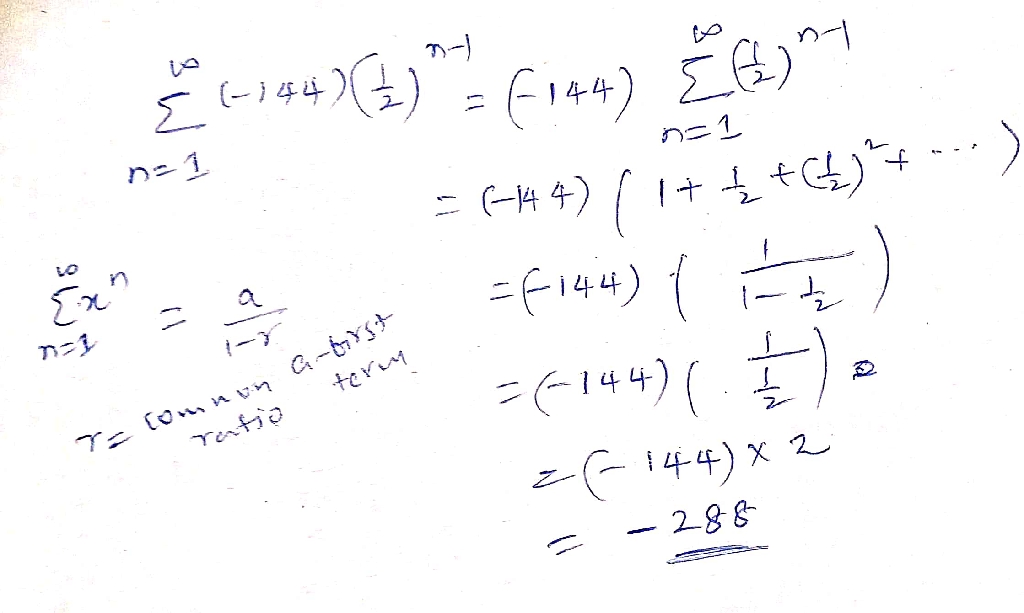 ∞ ∑ n=1 (-144)(1/2)^n-1 = (-144) ∞ ∑ n=1 (1/2)^n-1
= (-144) ( 1 + 1/2 + (1/2)^2 + ....)
∞ ∑ n=1 x^n = a/1-r
r = common ratio
a - first term
= (-144) ( 1/1-1/2 )
= (-144) ( 1/1/2 )
= (-144) x 2
= - 288